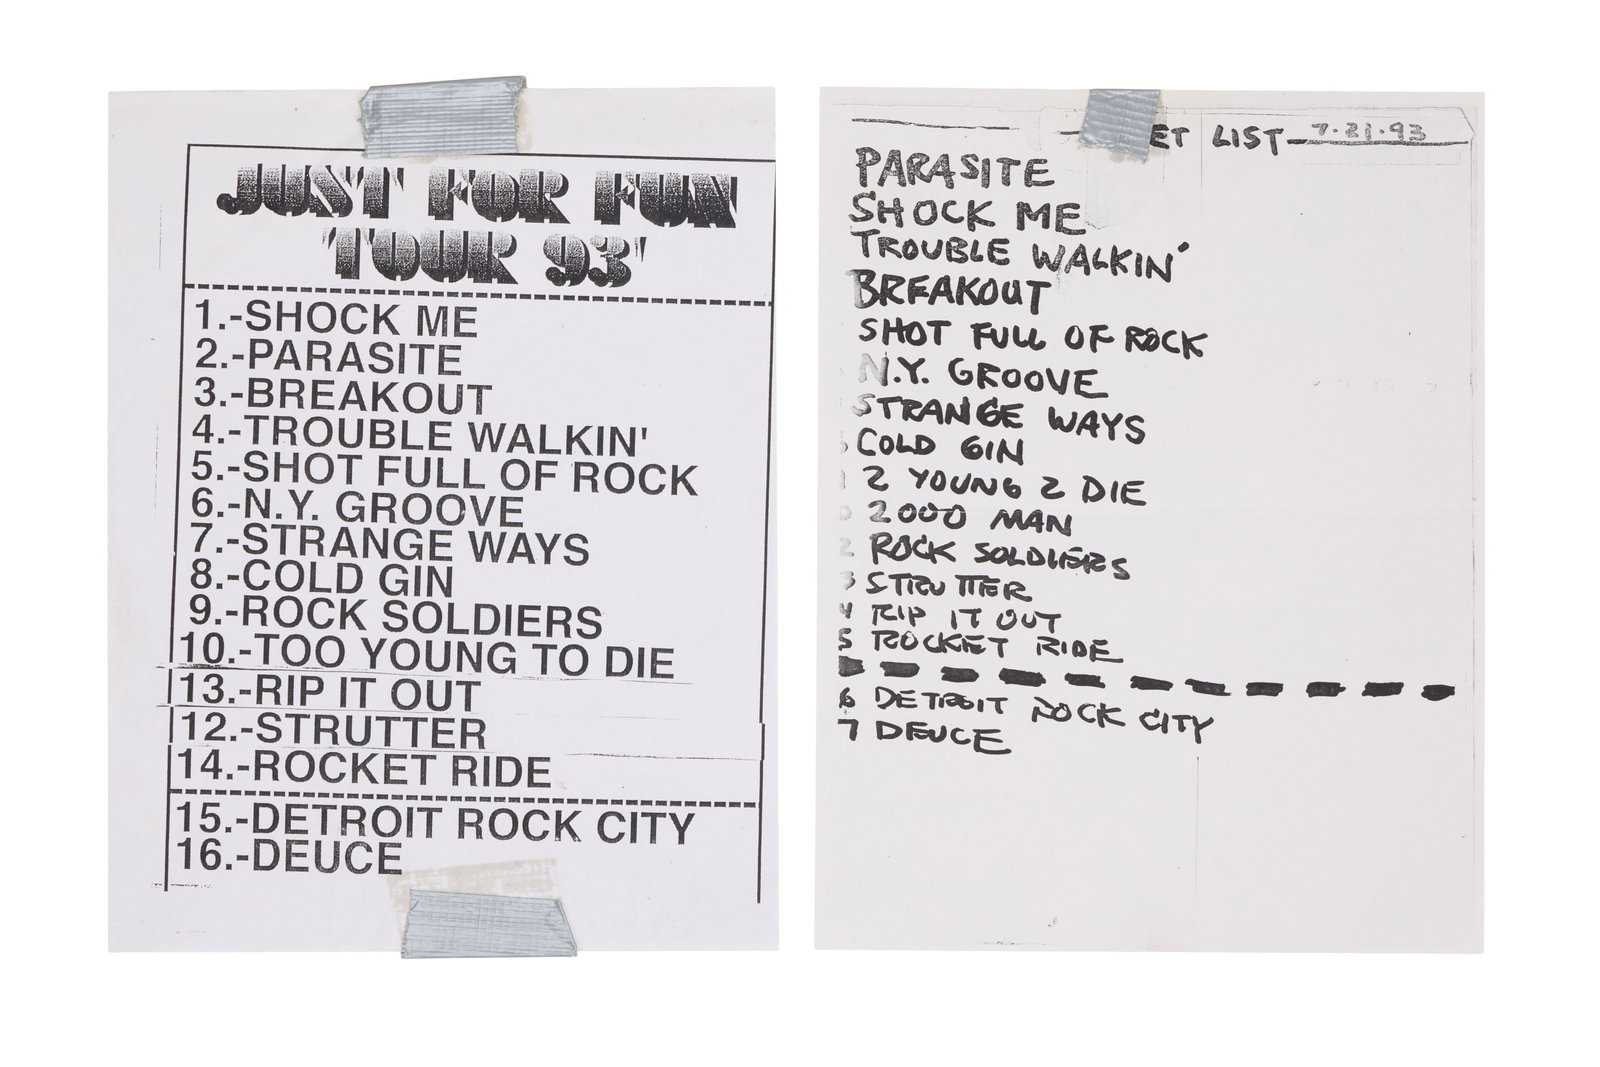 JUST FOR FUN
'TOUR 93'
1.-SHOCK ME
2.-PARASITE
3.-BREAKOUT
4.-TROUBLE WALKIN'
5.-SHOT FULL OF ROCK
6.-N.Y. GROOVE
7.-STRANGE WAYS
8.-COLD GIN
9.-ROCK SOLDIERS
10.-TOO YOUNG TO DIE
13.-RIP IT OUT
12.-STRUTTER
14.-ROCKET RIDE
15.-DETROIT ROCK CITY
16.-DEUCE
ET LIST 7.21.93
PARASITE
SHOCK ME
TROUBLE WALKIN'
BREAKOUT
SHOT FULL OF ROCK
N.Y. GROOVE
STRANGE WAYS
COLD GIN
2 YOUNG 2 DIE
2000 MAN
2 ROCK SOLDIERS
3 STRUTTER
4 RIP IT OUT
5 ROCKET RIDE
6 DETROIT ROCK CITY
7 DEUCE